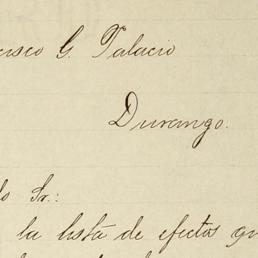 cisco G. Palacio
Durango.
do Sr.:
la lista de efectos